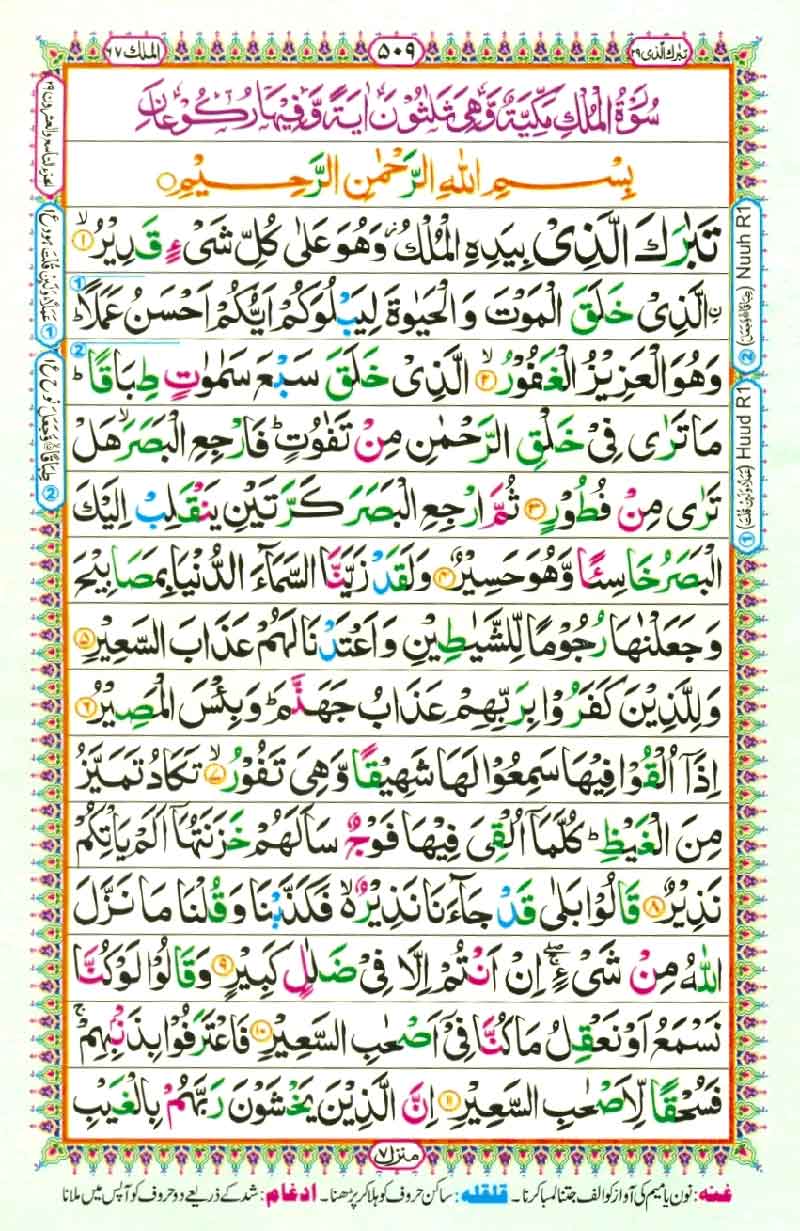 تبٰرك الذی ۲۹
۵۰۹
الملك ۶۷
سُوْرَةُ الْمُلْكِ مَكِّيَّةٌ وَّهِیَ ثَلٰثُوْنَ اٰيَةً وَّفِيْهَا رُكُوْعَانِ
بِسْمِ اللّٰهِ الرَّحْمٰنِ الرَّحِيْمِ
تَبٰرَكَ الَّذِیْ بِيَدِهِ الْمُلْكُ ۫ وَهُوَ عَلٰی كُلِّ شَیْءٍ قَدِيْرُ ۙ﴿۱﴾
ۨالَّذِیْ خَلَقَ الْمَوْتَ وَالْحَيٰوةَ لِيَبْلُوَكُمْ اَيُّكُمْ اَحْسَنُ عَمَلًا ؕ
وَهُوَ الْعَزِيْزُ الْغَفُوْرُ ۙ﴿۲﴾ الَّذِیْ خَلَقَ سَبْعَ سَمٰوٰتٍ طِبَاقًا ؕ
مَا تَرٰی فِیْ خَلْقِ الرَّحْمٰنِ مِنْ تَفٰوُتٍ ؕ فَارْجِعِ الْبَصَرَ ۙ هَلْ
تَرٰی مِنْ فُطُوْرٍ ﴿۳﴾ ثُمَّ ارْجِعِ الْبَصَرَ كَرَّتَيْنِ يَنْقَلِبْ اِلَيْكَ
الْبَصَرُ خَاسِئًا وَّهُوَ حَسِيْرٌ ﴿۴﴾ وَلَقَدْ زَيَّنَّا السَّمَآءَ الدُّنْيَا بِمَصَابِيْحَ
وَجَعَلْنٰهَا رُجُوْمًا لِّلشَّيٰطِيْنِ وَاَعْتَدْنَا لَهُمْ عَذَابَ السَّعِيْرِ ﴿۵﴾
وَلِلَّذِيْنَ كَفَرُوْا بِرَبِّهِمْ عَذَابُ جَهَنَّمَ ؕ وَبِئْسَ الْمَصِيْرُ ﴿۶﴾
اِذَآ اُلْقُوْا فِيْهَا سَمِعُوْا لَهَا شَهِيْقًا وَّهِیَ تَفُوْرُ ۙ﴿۷﴾ تَكَادُ تَمَيَّزُ
مِنَ الْغَيْظِ ؕ كُلَّمَآ اُلْقِیَ فِيْهَا فَوْجٌ سَاَلَهُمْ خَزَنَتُهَآ اَلَمْ يَاْتِكُمْ
نَذِيْرٌ ﴿۸﴾ قَالُوْا بَلٰی قَدْ جَآءَنَا نَذِيْرٌ ۙ۬ فَكَذَّبْنَا وَقُلْنَا مَا نَزَّلَ
اللّٰهُ مِنْ شَیْءٍ ۖۚ اِنْ اَنْتُمْ اِلَّا فِیْ ضَلٰلٍ كَبِيْرٍ ﴿۹﴾ وَقَالُوْا لَوْ كُنَّا
نَسْمَعُ اَوْ نَعْقِلُ مَا كُنَّا فِیْٓ اَصْحٰبِ السَّعِيْرِ ﴿۱۰﴾ فَاعْتَرَفُوْا بِذَنْۢبِهِمْ ۚ
فَسُحْقًا لِّاَصْحٰبِ السَّعِيْرِ ﴿۱۱﴾ اِنَّ الَّذِيْنَ يَخْشَوْنَ رَبَّهُمْ بِالْغَيْبِ
Nuuh R1
Huud R1
منزل ۷
غنه: نون یا میم کی آواز کو الف جتنا لمبا کرنا۔ قلقله: ساکن حروف کو ہلا کر پڑھنا۔ ادغام: شد کے ذریعے دو حروف کو آپس میں ملانا